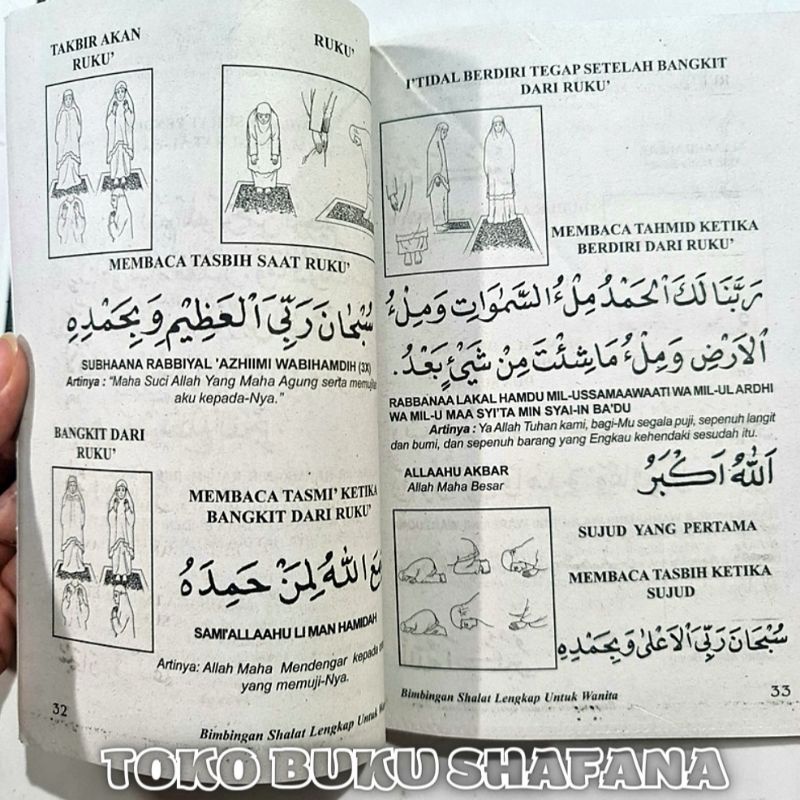 TAKBIR AKAN
RUKU'
RUKU'
MEMBACA TASBIH SAAT RUKU'
سُبْحَانَ رَبِّيَ الْعَظِيْمِ وَبِحَمْدِهِ
SUBHAANA RABBIYAL 'AZHIIMI WABIHAMDIH (3X)
Artinya : "Maha Suci Allah Yang Maha Agung serta memuji
aku kepada-Nya."
BANGKIT DARI
RUKU'
MEMBACA TASMI' KETIKA
BANGKIT DARI RUKU'
اللهُ لِمَنْ حَمِدَهُ
SAMI'ALLAAHU LI MAN HAMIDAH
Artinya: Allah Maha Mendengar kepada
yang memuji-Nya.
32
Bimbingan Shalat Lengkap Untuk
I'TIDAL BERDIRI TEGAP SETELAH BANGKIT
DARI RUKU'
MEMBACA TAHMID KETIKA
BERDIRI DARI RUKU'
رَبَّنَا لَكَ الْحَمْدُ مِلْءُ السَّمٰوَاتِ وَمِلْءُ
الْاَرْضِ وَمِلْءُ مَاشِئْتَ مِنْ شَيْءٍ بَعْدُ.
RABBANAA LAKAL HAMDU MIL-USSAMAAWAATI WA MIL-UL ARDHI
WA MIL-U MAA SYI'TA MIN SYAI-IN BA'DU
Artinya : Ya Allah Tuhan kami, bagi-Mu segala puji, sepenuh langit
dan bumi, dan sepenuh barang yang Engkau kehendaki sesudah itu.
ALLAAHU AKBAR
Allah Maha Besar
اَللهُ اَكْبَرُ
SUJUD YANG PERTAMA
MEMBACA TASBIH KETIKA
SUJUD
سُبْحَانَ رَبِّيَ الْاَعْلٰى وَبِحَمْدِهِ
Bimbingan Shalat Lengkap Untuk Wanita
33
TOKO BUKU SHAFANA